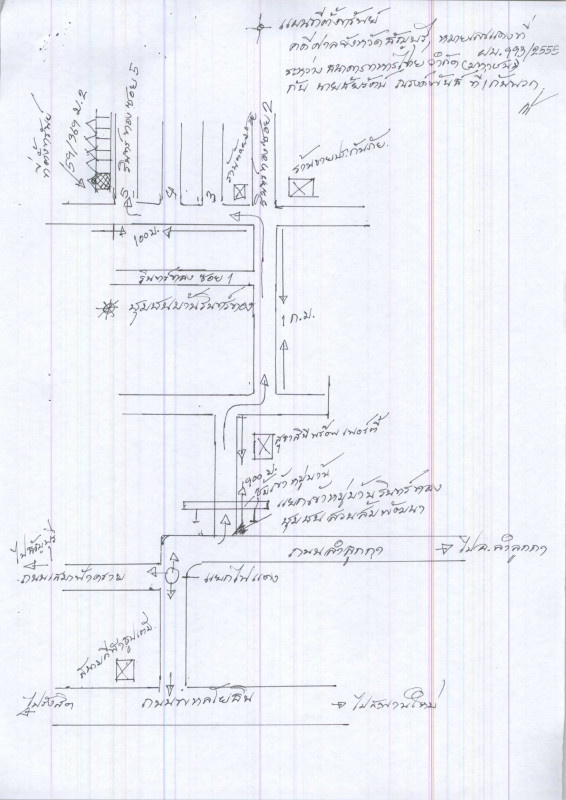 แผนที่ตั้งทรัพย์
คดีศาลจังหวัดธัญบุรี, หมายเลขแดงที่
ผบ.993/2555
ระหว่าง ธนาคารทหารไทย จำกัด (มหาชน)
กับ นายชัยรัตน์ ที่ 1 กับพวก
ที่ตั้งทรัพย์
159/369 ม.2
รินทร์ทอง ซอย 5
รินทร์ทอง ซอย 2
ร้านขายประกันภัย
5
4
3
100 ม.
รินทร์ทอง ซอย 1
ชุมชนบ้านรินทร์ทอง
1 ก.ม.
สุชาสินีพร็อพเพอร์ตี้
900 ม.
ซุ้มเข้าหมู่บ้าน
แยกเข้าหมู่บ้านรินทร์ทอง
ชุมชนสวนสัมพัฒนา
ไปธัญบุรี
ถนนลำลูกกา
ไป อ.ลำลูกกา
ถนนเสมาฟ้าคราม
แยกไฟแดง
สนามกีฬาธูปะเตมีย์
ไปรังสิต
ถนนพหลโยธิน
ไปสะพานใหม่